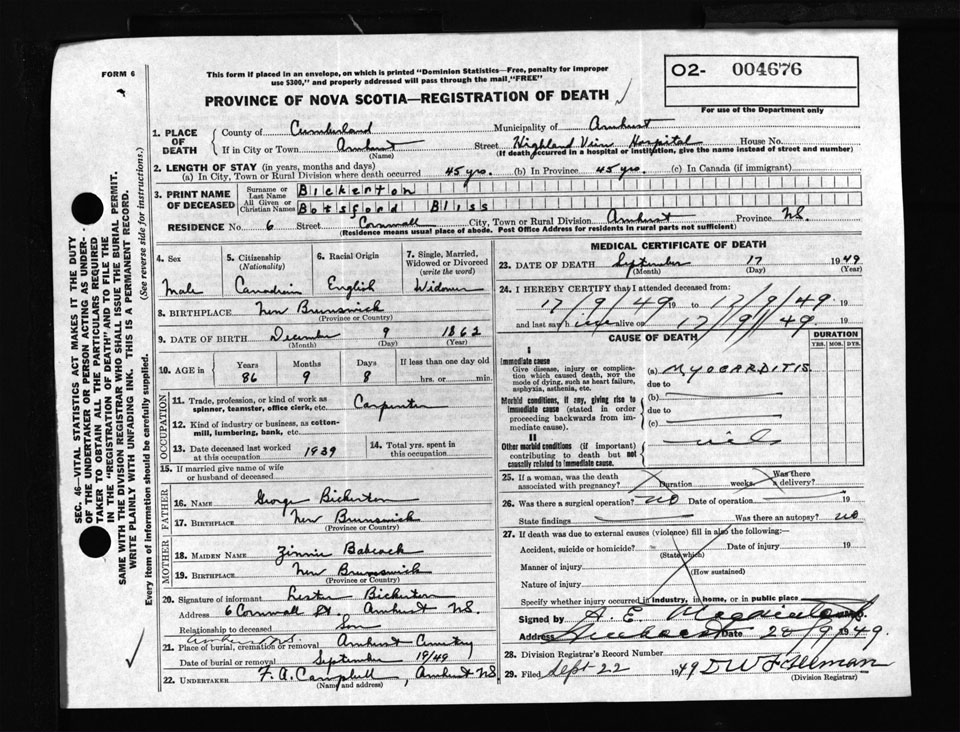 FORM 6
This form if placed in an envelope, on which is printed "Dominion Statistics—Free, penalty for improper
use $300," and properly addressed will pass through the mail "FREE"
PROVINCE OF NOVA SCOTIA—REGISTRATION OF DEATH
O2- 004676
For use of the Department only
1. PLACE OF DEATH
County of Cumberland Municipality of Amherst
If in City or Town Amherst Street Highland View Hospital House No.
(Name) (If death occurred in a hospital or institution, give the name instead of street and number)
2. LENGTH OF STAY (in years, months and days)
(a) In City, Town or Rural Division where death occurred 45 yrs. (b) In Province 45 yrs. (c) In Canada (if immigrant)
3. PRINT NAME OF DECEASED
Surname or Last Name Bickerton
All Given or Christian Names Botsford Bliss
RESIDENCE No. 6 Street Cornwall City, Town or Rural Division Amherst Province N.S.
(Residence means usual place of abode. Post Office Address for residents in rural parts not sufficient)
4. Sex
Male
5. Citizenship
(Nationality)
Canadian
6. Racial Origin
English
7. Single, Married,
Widowed or Divorced
(write the word)
Widower
8. BIRTHPLACE New Brunswick
(Province or Country)
9. DATE OF BIRTH December 9 1862
(Month) (Day) (Year)
10. AGE in
Years Months Days If less than one day old
86 9 8 hrs. or min.
OCCUPATION
11. Trade, profession, or kind of work as
spinner, teamster, office clerk, etc. Carpenter
12. Kind of industry or business, as cotton-
mill, lumbering, bank, etc.
13. Date deceased last worked
at this occupation 1939
14. Total yrs. spent in
this occupation
15. If married give name of wife
or husband of deceased
FATHER
16. NAME George Bickerton
17. BIRTHPLACE New Brunswick
(Province or Country)
MOTHER
18. MAIDEN NAME Zinnie Babcock
19. BIRTHPLACE New Brunswick
(Province or Country)
20. Signature of informant Lester Bickerton
Address 6 Cornwall St. Amherst N.S.
Relationship to deceased Son
Amherst N.S.
21. Place of burial, cremation or removal Amherst Cemetery
Date of burial or removal September 19/49
22. UNDERTAKER F. A. Campbell, Amherst N.S.
(Name and address)
MEDICAL CERTIFICATE OF DEATH
23. DATE OF DEATH September 17 1949
(Month) (Day) (Year)
24. I HEREBY CERTIFY that I attended deceased from:
17/9/49 19 to 17/9/49 19
and last saw h alive on 17/9/49 19
CAUSE OF DEATH
DURATION
YRS. MOS. DYS.
I
Immediate cause
Give disease, injury or complica-
tion which caused death, not the
mode of dying, such as heart failure,
asphyxia, asthenia, etc.
(a) MYOCARDITIS
due to
Morbid conditions, if any, giving rise to
immediate cause (stated in order
proceeding backwards from im-
mediate cause).
(b)
due to
(c)
II
Other morbid conditions (if important)
contributing to death but not
causally related to immediate cause.
25. If a woman, was the death
associated with pregnancy? Duration weeks. Was there
a delivery?
26. Was there a surgical operation? NO Date of operation 19
State findings Was there an autopsy? NO
27. If death was due to external causes (violence) fill in also the following:—
Accident, suicide or homicide? Date of injury 19
(State which)
Manner of injury
(How sustained)
Nature of injury
Specify whether injury occurred in industry, in home, or in public place
Signed by
Address Amherst Date 28/9/1949.
28. Division Registrar's Record Number
29. Filed Sept 22 1949
(Division Registrar)
SEC. 46—VITAL STATISTICS ACT MAKES IT THE DUTY
OF THE UNDERTAKER OR PERSON ACTING AS UNDER-
TAKER TO OBTAIN ALL THE PARTICULARS REQUIRED
IN THE "REGISTRATION OF DEATH" AND TO FILE THE
SAME WITH THE DIVISION REGISTRAR WHO SHALL ISSUE THE BURIAL PERMIT.
WRITE PLAINLY WITH UNFADING INK. THIS IS A PERMANENT RECORD.
Every item of information should be carefully supplied. (See reverse side for instructions.)